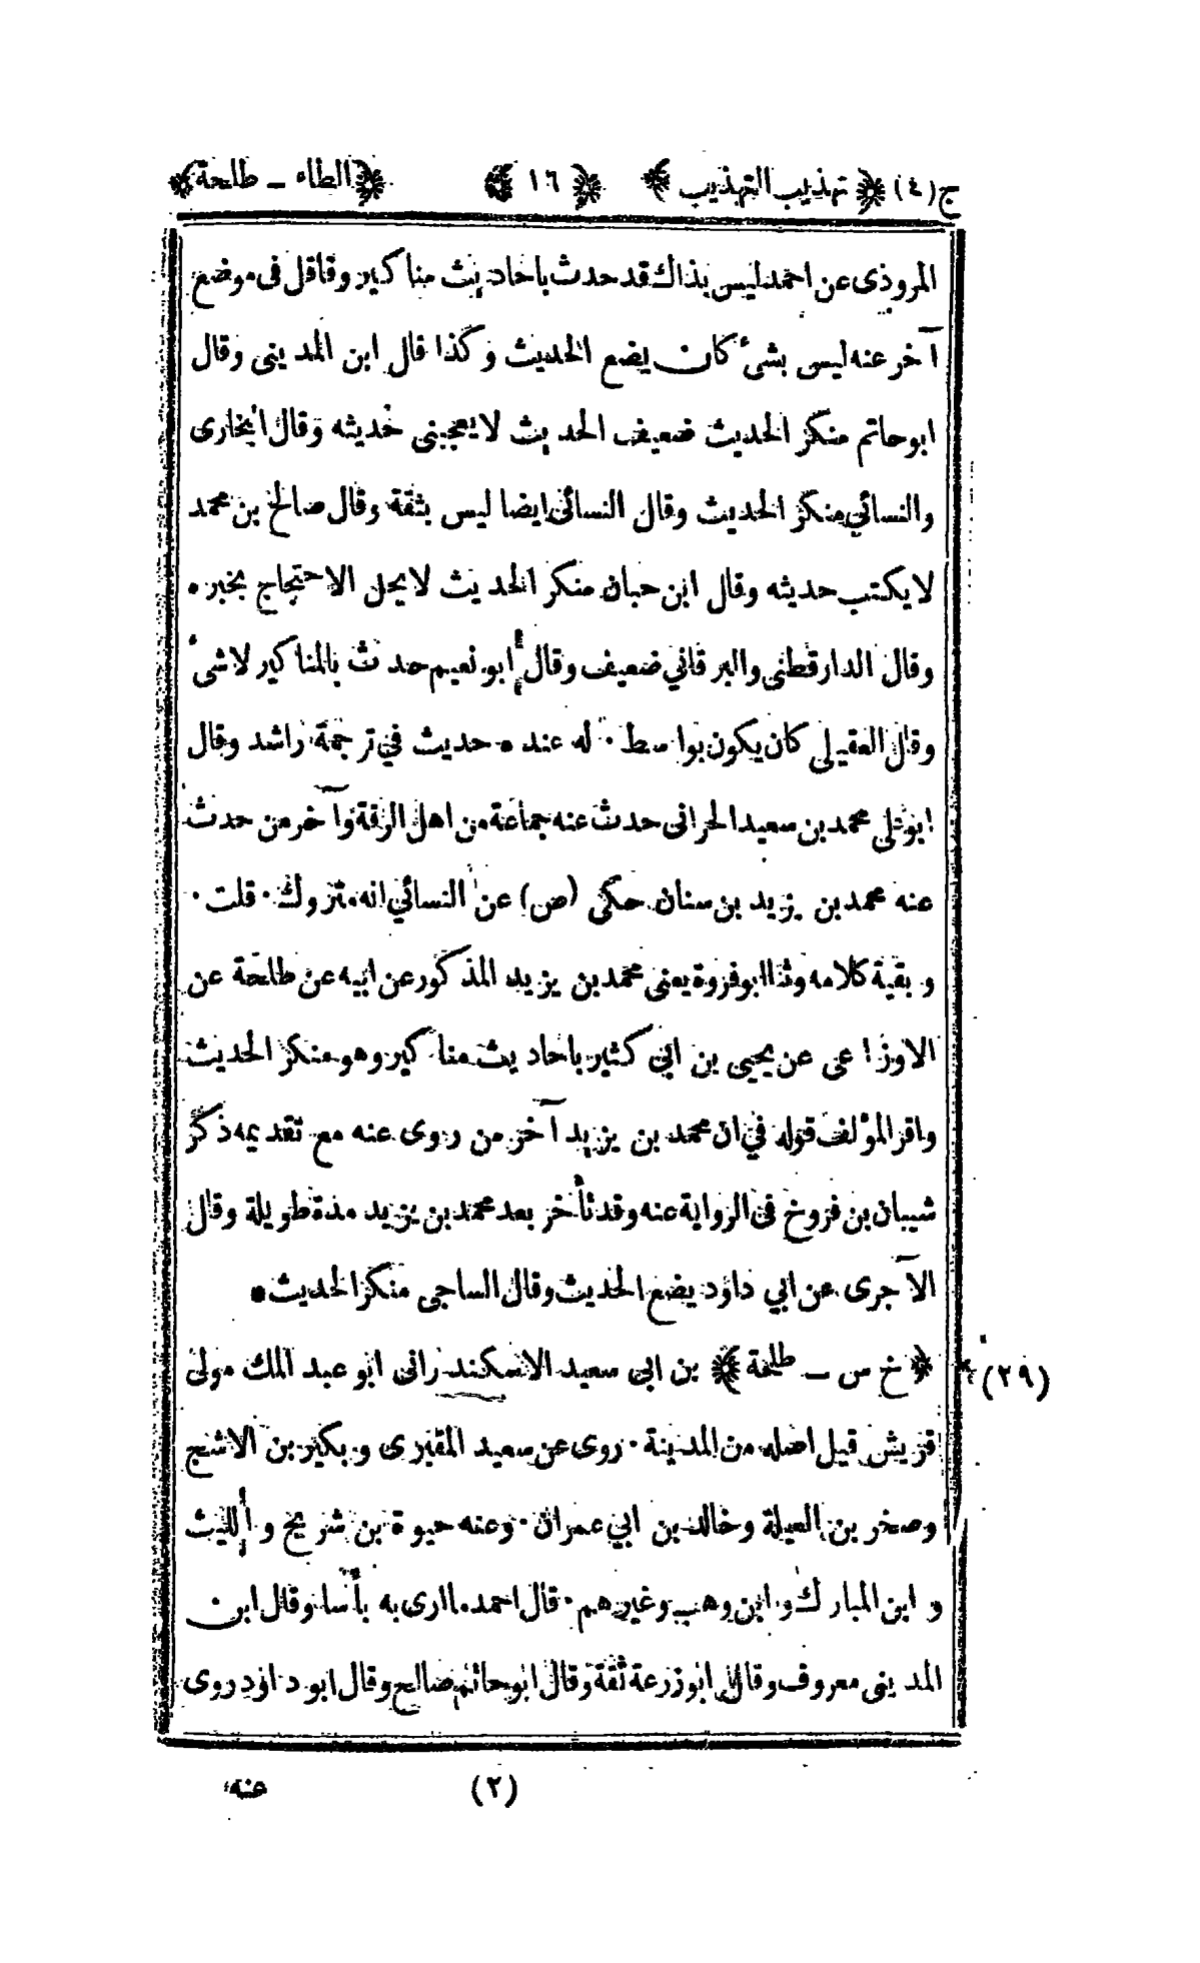 ج (٤) ﴿ تهذيب التهذيب ﴾ ﴿ ١٦ ﴾ ﴿ الطاء ـ طلحة ﴾
المروذى عن احمد ليس بذاك قد حدث باحاديث مناكير وقاقل فى موضع
آخر عنه ليس بشئ كان يضع الحديث وكذا قال ابن المدينى وقال
ابوحاتم منكر الحديث ضعيف الحديث لا يعجبنى حديثه وقال البخارى
والنسائي منكر الحديث وقال النسائى ايضا ليس بثقة وقال صالح بن محمد
لا يكتب حديثه وقال ابن حبان منكر الحديث لا يحل الاحتجاج بخبره
وقال الدارقطنى والبرقاني ضعيف وقال ابو نعيم حدث بالمناكير لا شئ
وقال العقيلى كان يكون بواسط ٠ له عنده حديث في ترجمة راشد وقال
ابوعلى محمد بن سعيد الحرانى حدث عنه جماعة من اهل الرقة وآخر من حدث
عنه محمد بن يزيد بن سنان حكى (ص) عن النسائي انه متروك ٠ قلت ٠
وبقية كلامه وثنا ابوفروة يعنى محمد بن يزيد المذكور عن ابيه عن طلحة عن
الاوزاعى عن يحيى بن ابي كثير باحاديث مناكير وهو منكر الحديث
واقر المؤلف قوله في ان محمد بن يزيد آخر من روى عنه مع تقديمه ذكر
شيبان بن فروخ فى الرواية عنه وقد تأخر بعد محمد بن يزيد مدة طويلة وقال
الآجرى عن ابي داؤد يضع الحديث وقال الساجى منكر الحديث ٠
(٢٩) ﴿ خ س ـ طلحة ﴾ بن ابى سعيد الاسكندرانى ابو عبد الملك مولى
قريش قيل اصله من المدينة ٠ روى عن سعيد المقبرى وبكير بن الاشج
وصخر بن العيلة وخالد بن ابي عمران ٠ وعنه حيوة بن شريح والليث
وابن المبارك وابن وهب وغيرهم ٠ قال احمد ما ارى به بأسا وقال ابن
المدينى معروف وقال ابوزرعة ثقة وقال ابوحاتم صالح وقال ابوداؤد روى
(٢) عنه